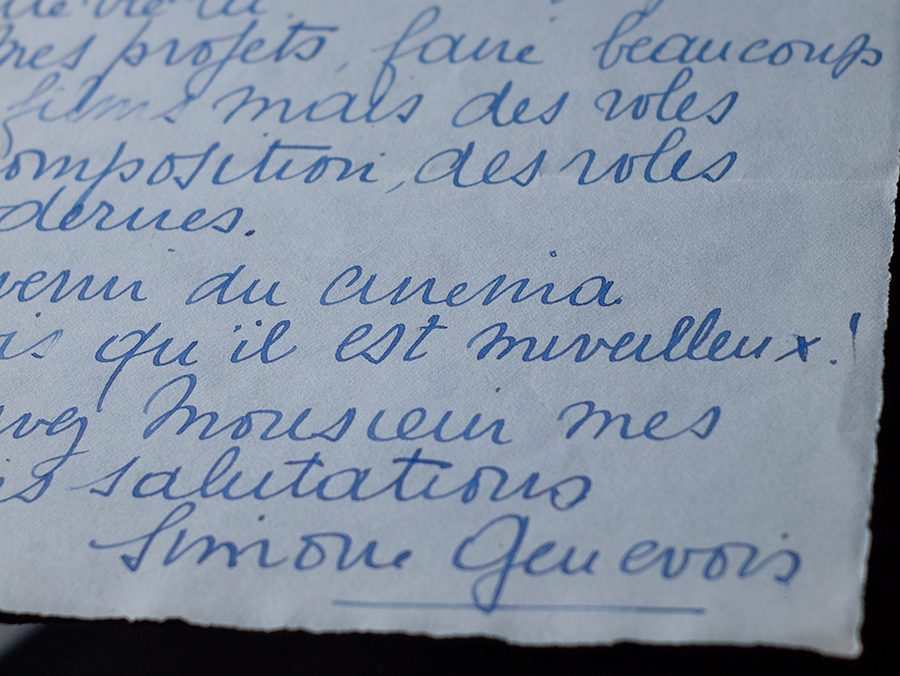 mes projets, faire beaucoup
films mais des roles
composition, des roles
dernes.
venir du cinema
is qu'il est merveilleux!
Monsieur mes
salutations
Simone Genevois